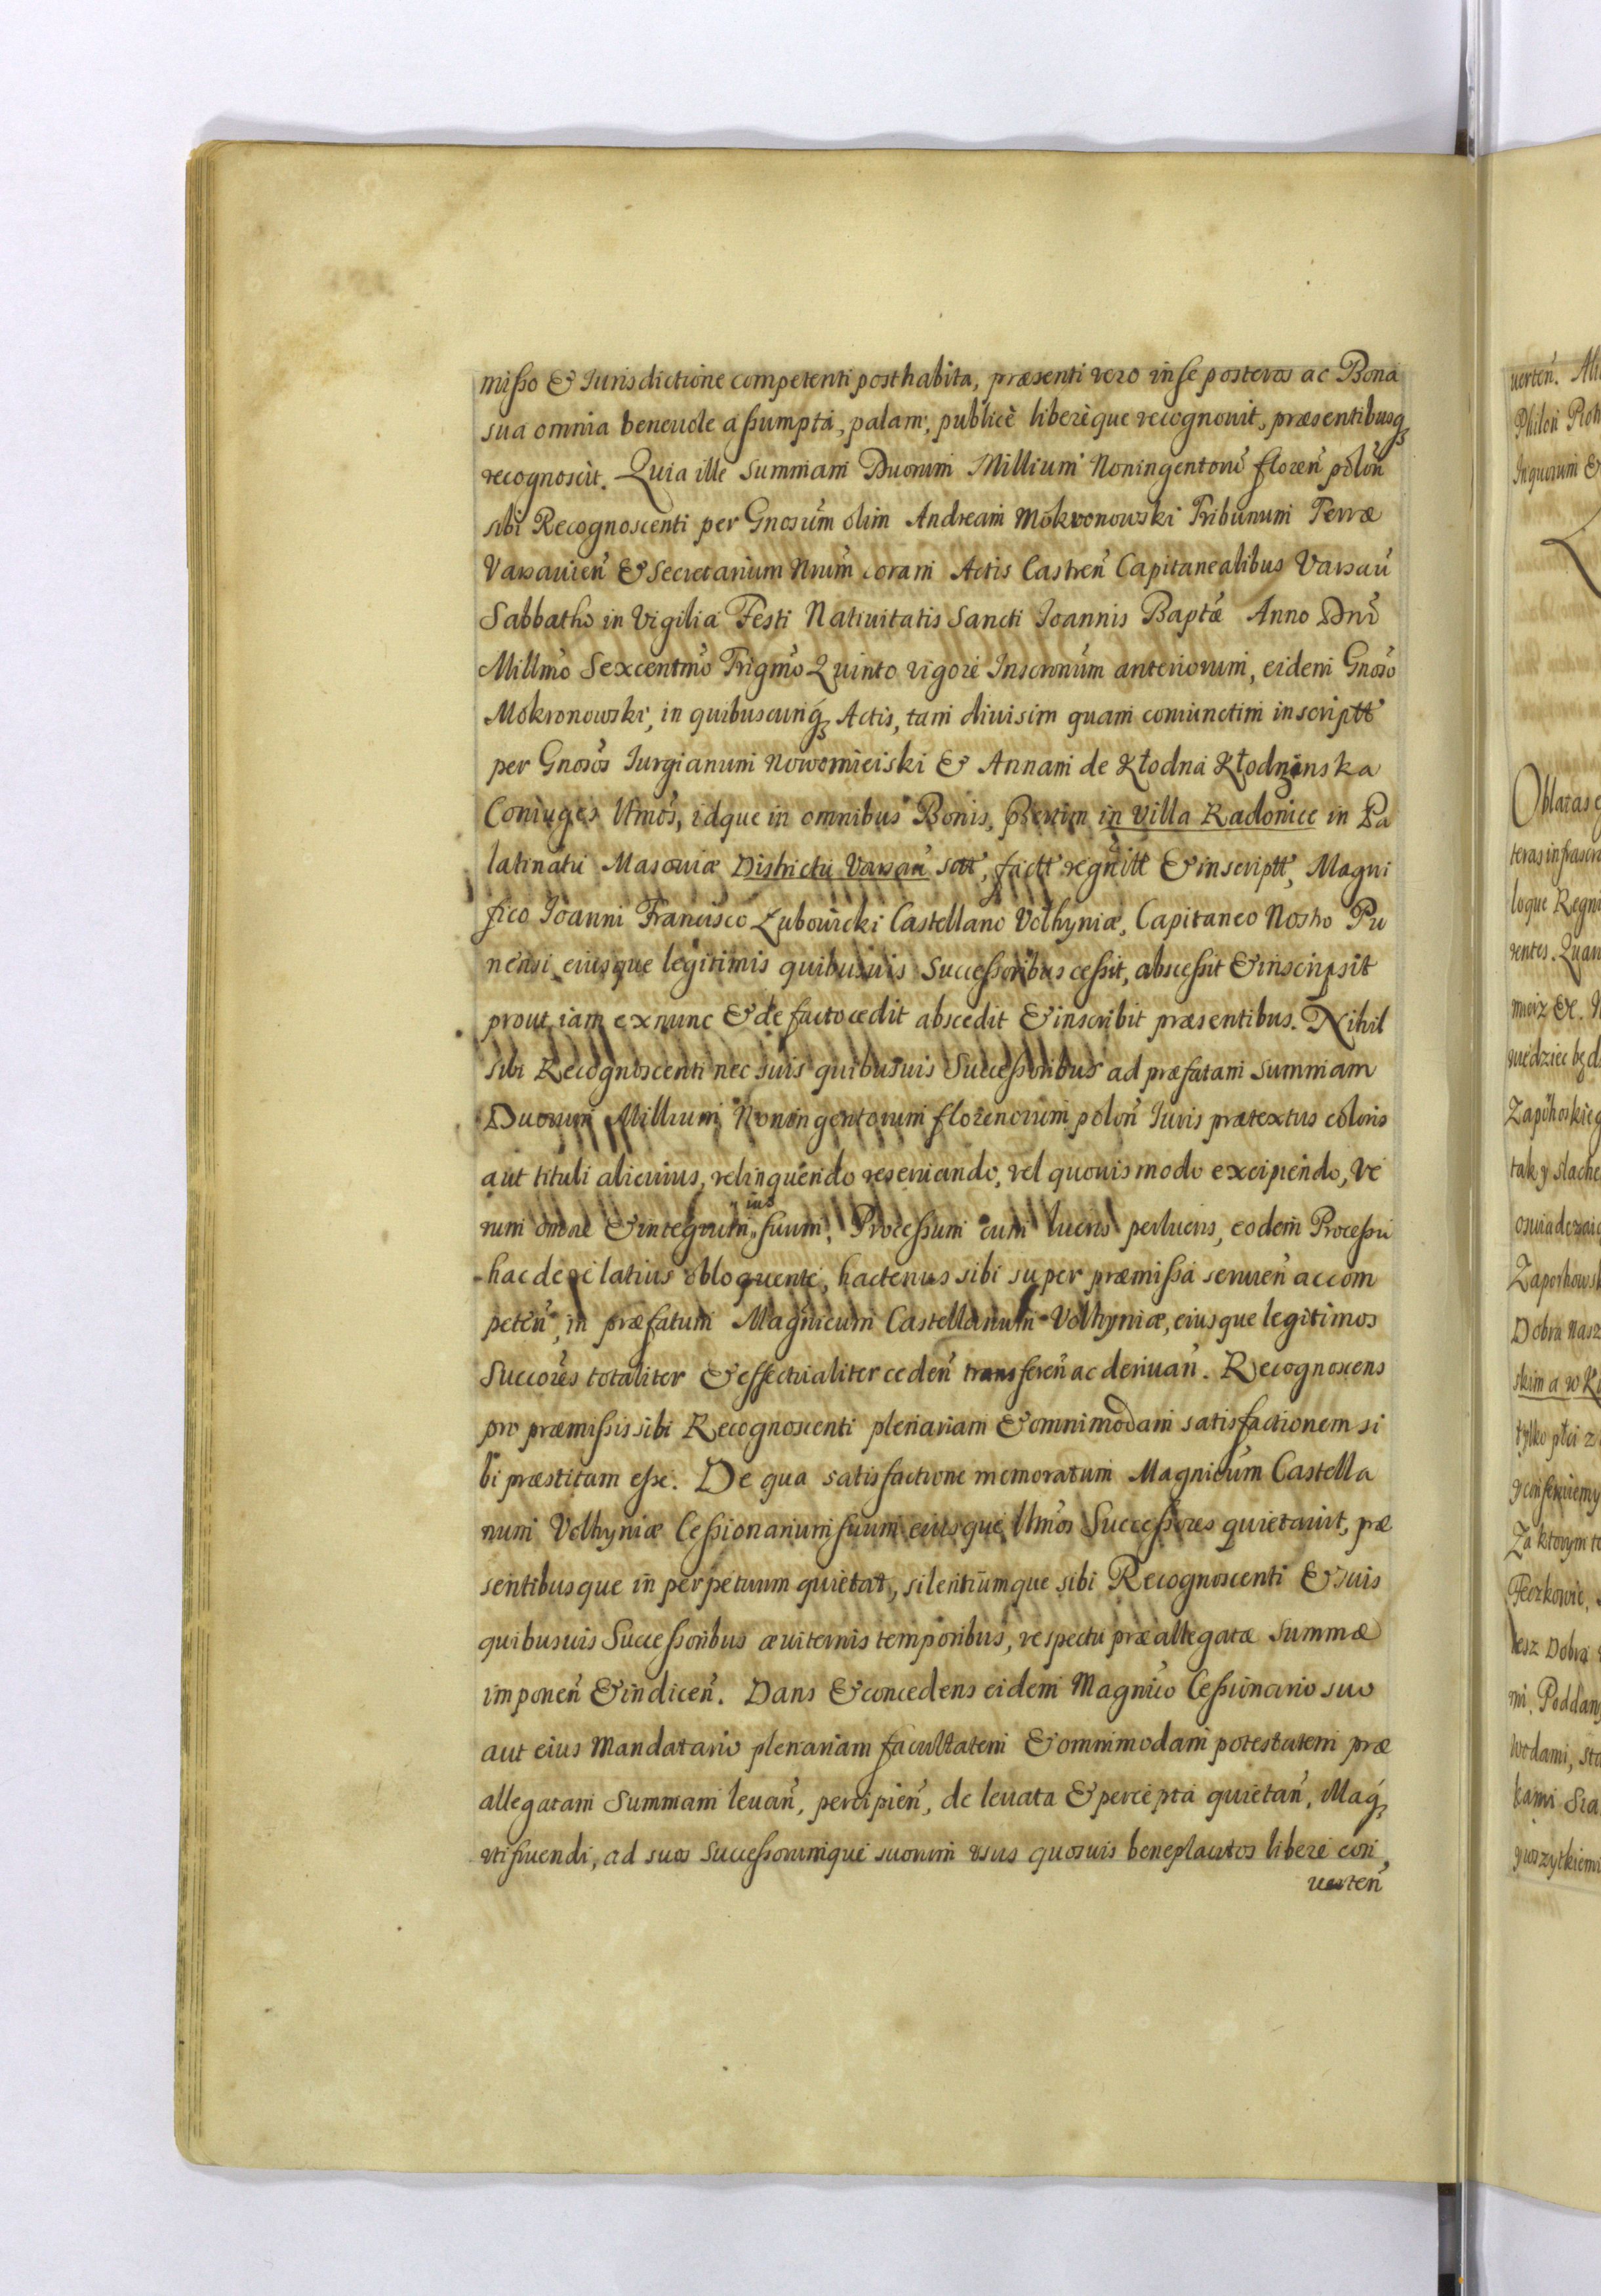 misso & Jurisdictione competenti posthabita, præsenti vero in se posteros ac Bona
sua omnia beneuole assumptâ, palam, publicè liberèque recognouit, præsentibusq
recognoscit. Quia ille summam Duorum Millium Noningentorũ floren̄ polon̄
sibi Recognoscenti per Gnosũm olim Andream Mokronowski Tribunum Terræ
Varsauien̄ & Secretarium Nrũm coram Actis Castren̄ Capitanealibus Varsau̅
Sabbatho in Vigilia Festi Natiuitatis Sancti Joannis Baptæ Anno Dni
Millmo Sexcentmo Trigmo Quinto vigore Inscrnũm anteriorum, eidem Gnoso
Mokronowski, in quibuscunq Actis, tam diuisim quam coniunctim inscriptt
per Gnosos Jurgianum Nowomieiski & Annam de Kłodna Kłodzinska
Coniuges ltmos, idque in omnibus Bonis, prtim in Villa Radonice in Pa
latinatu Masouiæ Districtu Varsau̅ satt, factt regnitt & inscriptt, Magni
fico Joanni Francisco Lubowicki Castellano Volhyniæ, Capitaneo Nostro Pu
nensi eiusque legitimis quibusuis Successoribus cessit, abscessit & inscripsit
prout iam ex nunc & de facto cedit abscedit & inscribit præsentibus. Nihil
sibi Recognoscenti nec suis quibusuis Successoribus ad præfatam summam
Duorum Millium Noningentorum florenorum polon̄ Juris prætextus coloris
aut tituli alicuius, relinquendo reseruando, vel quouis modo excipiendo, Ve
rum omne & integrum suum, Processum cum lucris perlucris, eodem Processu
ius
hac de re latius obloquente, hactenus sibi super præmissa seruien̄ ac com
peten̄, in præfatum Magnicum Castellanum Volhyniæ, eiusque legitimos
Succores totaliter & effectualiter ceden̄ transferen̄ ac deriuan̄. Recognoscens
pro præmissis sibi Recognoscenti plenariam & omnimodam satisfactionem si
bi præstitam esse. De qua satisfactione memoratum Magnicum Castella
num Volhyniæ Cessionarium suum eiusque ltmos Successores quietauit, præ
sentibusque in perpetuum quietat, silentiumque sibi Recognoscenti & suis
quibusuis Successoribus æuiternis temporibus, respectu præallegatæ summæ
imponen̄ & indicen̄. Dans & concedens eidem Magnico Cessionario suo
aut eius Mandatario plenariam facultatem & omnimodam potestatem præ
allegatam Summam leuan̄, percipien̄, de leuata & percepta quietan̄, Eaq
utifruendi, ad suos Successorumque suorum usus quosuis beneplacitos libere con
uerten̄